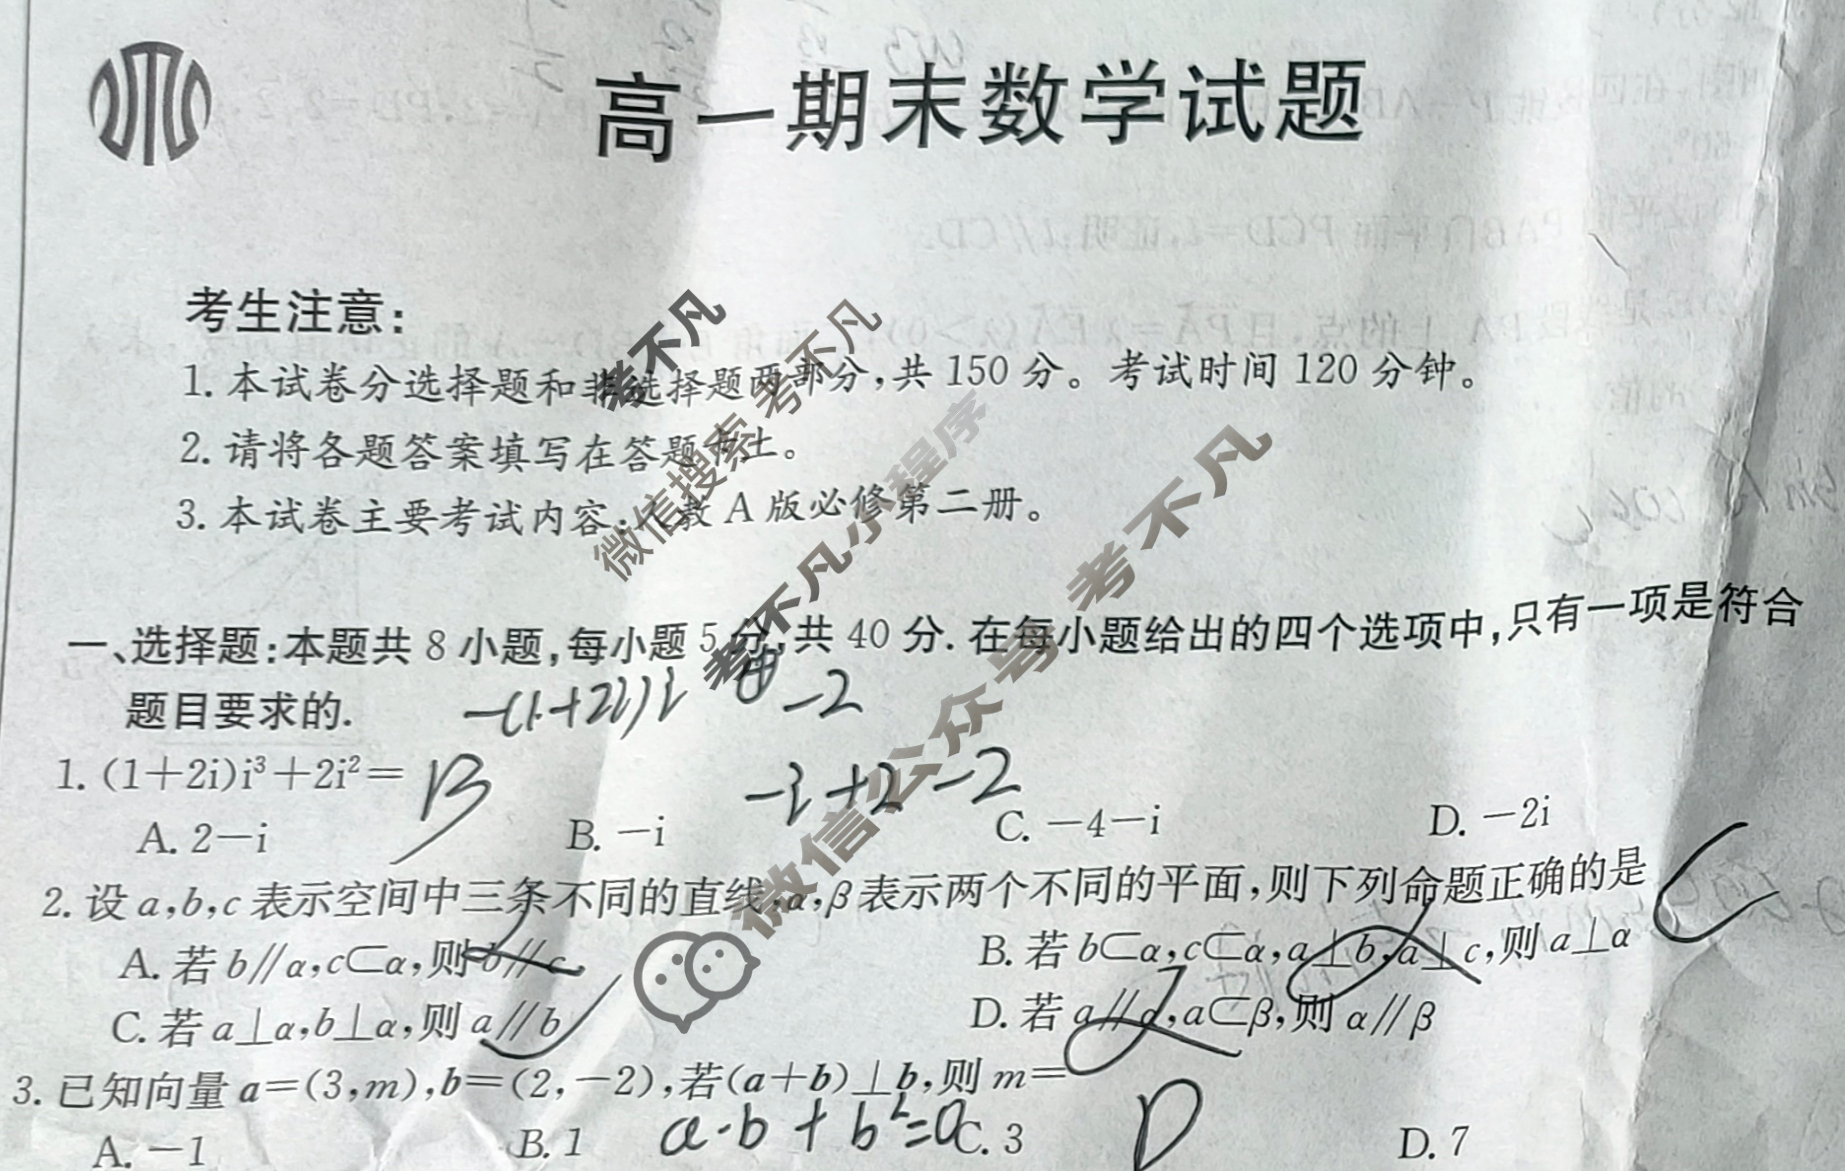 高一期末数学试题
考生注意:
1. 本试卷分选择题和非选择题两部分,共 150 分。考试时间 120 分钟。
2. 请将各题答案填写在答题卡上。
3. 本试卷主要考试内容:人教 A 版必修第二册。
一、选择题:本题共 8 小题,每小题 5 分,共 40 分. 在每小题给出的四个选项中,只有一项是符合
题目要求的.
-(1+2i)i -2
1. (1+2i)i³+2i²= B
-i+2-2
A. 2-i B. -i C. -4-i D. -2i
2. 设 a,b,c 表示空间中三条不同的直线,α,β 表示两个不同的平面,则下列命题正确的是 C
A. 若 b∥α,c⊂α,则 b∥c B. 若 b⊂α,c⊂α,a⊥b,a⊥c,则 a⊥α
C. 若 a⊥α,b⊥α,则 a∥b D. 若 a∥α,a⊂β,则 α∥β
3. 已知向量 a=(3,m),b=(2,-2),若(a+b)⊥b,则 m= D
a·b+b²=0
A. -1 B. 1 C. 3 D. 7
考不凡
微信搜索 考不凡
考不凡小程序
微信公众号 考不凡